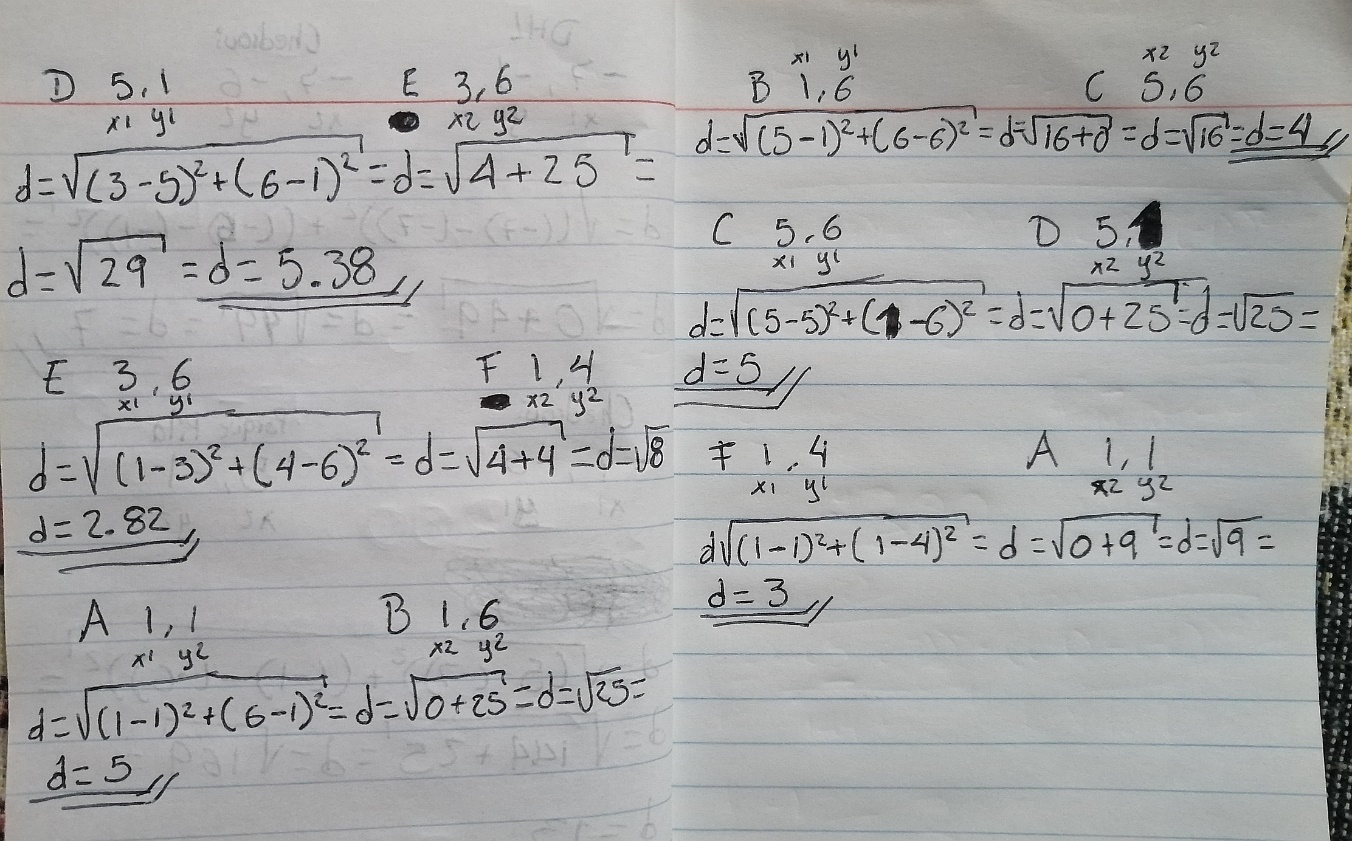 D 5,1 E 3,6
x1 y1 x2 y2
d=√(3-5)²+(6-1)² = d=√4+25 =
d=√29 = d=5.38
E 3,6 F 1,4
x1 y1 x2 y2
d=√(1-3)²+(4-6)² = d=√4+4 = d=√8
d=2.82
A 1,1 B 1,6
x1 y2 x2 y2
d=√(1-1)²+(6-1)² = d=√0+25 = d=√25 =
d=5
x1 y1 x2 y2
B 1,6 C 5,6
d=√(5-1)²+(6-6)² = d=√16+0 = d=√16 = d=4
C 5,6 D 5,1
x1 y1 x2 y2
d=√(5-5)²+(1-6)² = d=√0+25 = d=√25 =
d=5
F 1,4 A 1,1
x1 y1 x2 y2
d√(1-1)²+(1-4)² = d=√0+9 = d=√9 =
d=3